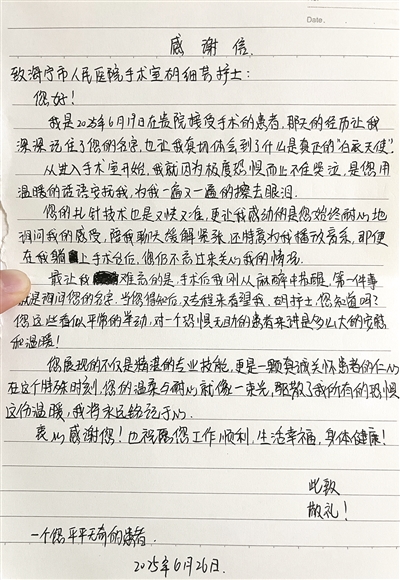 Date.
感谢信
致海宁市人民医院手术室胡细芳护士:
您好!
我是2025年6月19日在贵院接受手术的患者,那天的经历让我
深深记住了您的名字,也让我真切体会到了什么是真正的"白衣天使"
从进入手术室开始,我就因为极度恐惧而止不住哭泣,是您用
温暖的话语安抚我,为我一遍又一遍的擦去眼泪.
您的扎针技术也是又快又准,更让我感动的是您始终耐心地
询问我的感受,陪我聊天缓解紧张,还特意为我播放音乐,即便
在我躺上手术台后,您仍不忘过来关心我的情况.
最让我难忘的是,手术后我刚从麻醉中苏醒,第一件事
就是询问您的名字,当您得知后,又专程来看望我.胡护士,您知道吗?
您这些看似平常的举动,对一个恐惧无助的患者来讲是多么大的安慰
和温暖!
您展现的不仅是精湛的专业技能,更是一颗真诚关怀患者的仁心
在这个特殊时刻,您的温柔与耐心就像一束光,驱散了我所有的恐惧
这份温暖,我将永远铭记于心.
衷心感谢您!也祝愿您工作顺利,生活幸福,身体健康!
此致
敬礼!
一个您平平无奇的患者.
2025年6月26日.